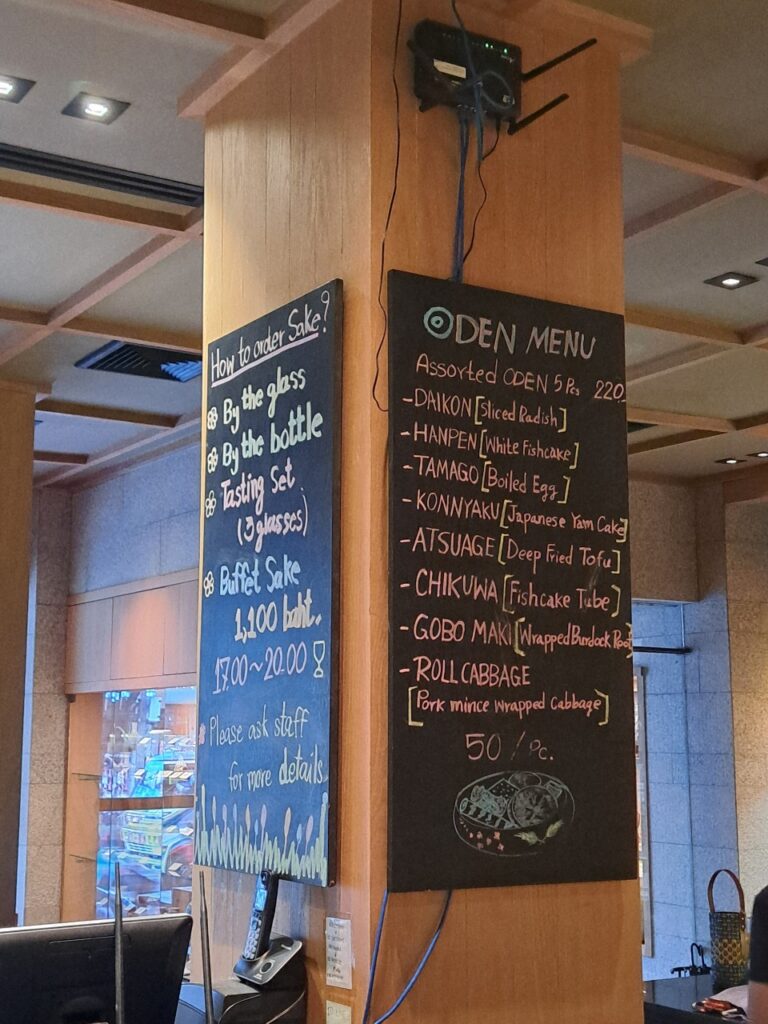 How to order Sake?
By the glass
By the bottle
Tasting Set
(3 glasses)
Buffet Sake
1,100 baht.
17.00~20.00
Please ask staff
for more details
ODEN MENU
Assorted ODEN 5 Pcs 220.
- DAIKON [Sliced Radish]
- HANPEN [White Fishcake]
- TAMAGO [Boiled Egg]
- KONNYAKU [Japanese Yam Cake]
- ATSUAGE [Deep Fried Tofu]
- CHIKUWA [Fishcake Tube]
- GOBO MAKI [Wrapped Burdock Root]
- ROLL CABBAGE
[Pork mince wrapped Cabbage]
50 / pc.